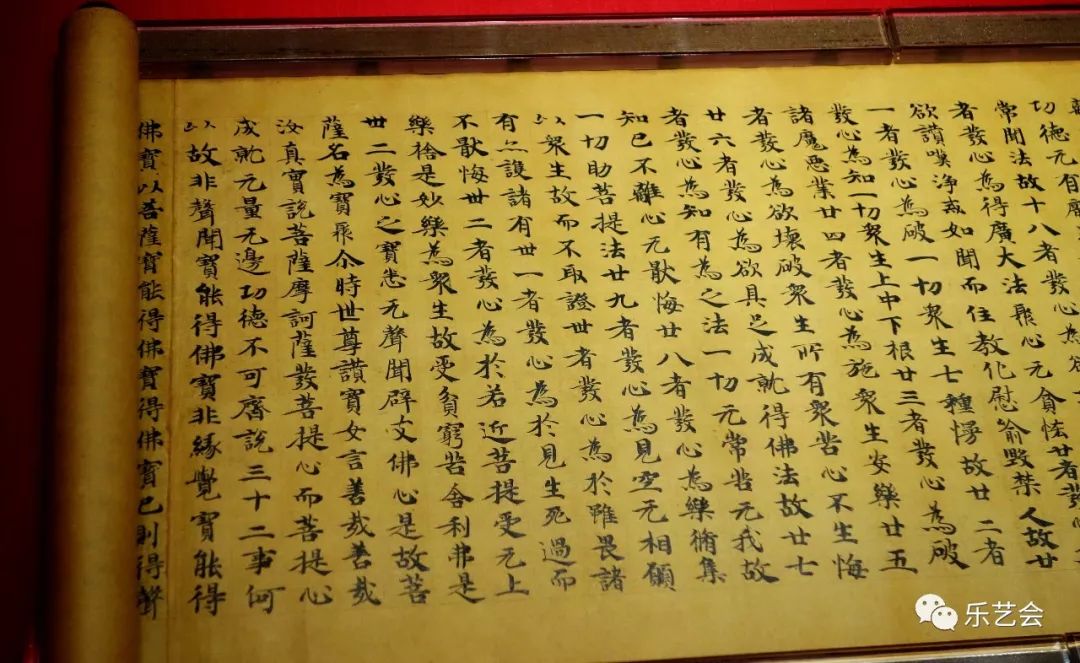 切德元有
常聞法故十八者發心為欲
者發心為得廣大法聚心元貪恡廿者發心
欲讚嘆淨戒如聞而住教化慰喻毀禁人故廿
一者發心為破一切眾生七種慢故廿二者
發心為知一切眾生上中下根廿三者發心為破
諸魔惡業廿四者發心為施眾生安樂廿五
者發心為欲壞破眾生所有眾苦心不生悔
廿六者發心為欲具足成就得佛法故廿七
者發心為知有為之法一切无常苦无我故
知已不離心无猒悔廿八者發心為樂術集
一切助菩提法廿九者發心為見空无相願
以眾生故而不取證卅者發心為於雖畏諸
有亦護諸有卅一者發心為於見生死過而
不猒悔卅二者發心為於若近菩提受无上
樂捨是妙樂為眾生故受貧窮苦舍利弗是
卅二發心之寶悉无聲聞辟支佛心是故菩
薩名為寶聚尒時世尊讚寶女言善哉善哉
汝真實說菩薩摩訶薩發菩提心而菩提心
成就无量无邊功德不可齊說三十二事何
以故非聲聞寶能得佛寶非緣覺寶能得
佛寶以菩薩寶能得佛寶得佛寶已則得聲
乐艺会